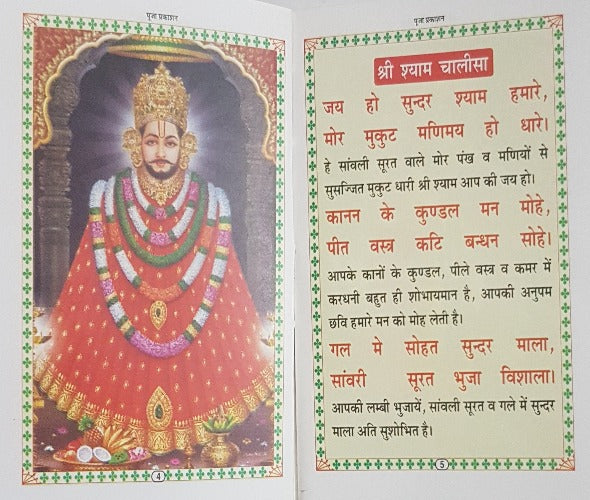 पूजा प्रकाशन
4
पूजा प्रकाशन
श्री श्याम चालीसा
जय हो सुन्दर श्याम हमारे,
मोर मुकुट मणिमय हो धारे।
हे सांवली सूरत वाले मोर पंख व मणियों से
सुसज्जित मुकुट धारी श्री श्याम आप की जय हो।
कानन के कुण्डल मन मोहे,
पीत वस्त्र कटि बन्धन सोहे।
आपके कानों के कुण्डल, पीले वस्त्र व कमर में
करधनी बहुत ही शोभायमान है, आपकी अनुपम
छवि हमारे मन को मोह लेती है।
गल मे सोहत सुन्दर माला,
सांवरी सूरत भुजा विशाला।
आपकी लम्बी भुजायें, सांवली सूरत व गले में सुन्दर
माला अति सुशोभित है।
5